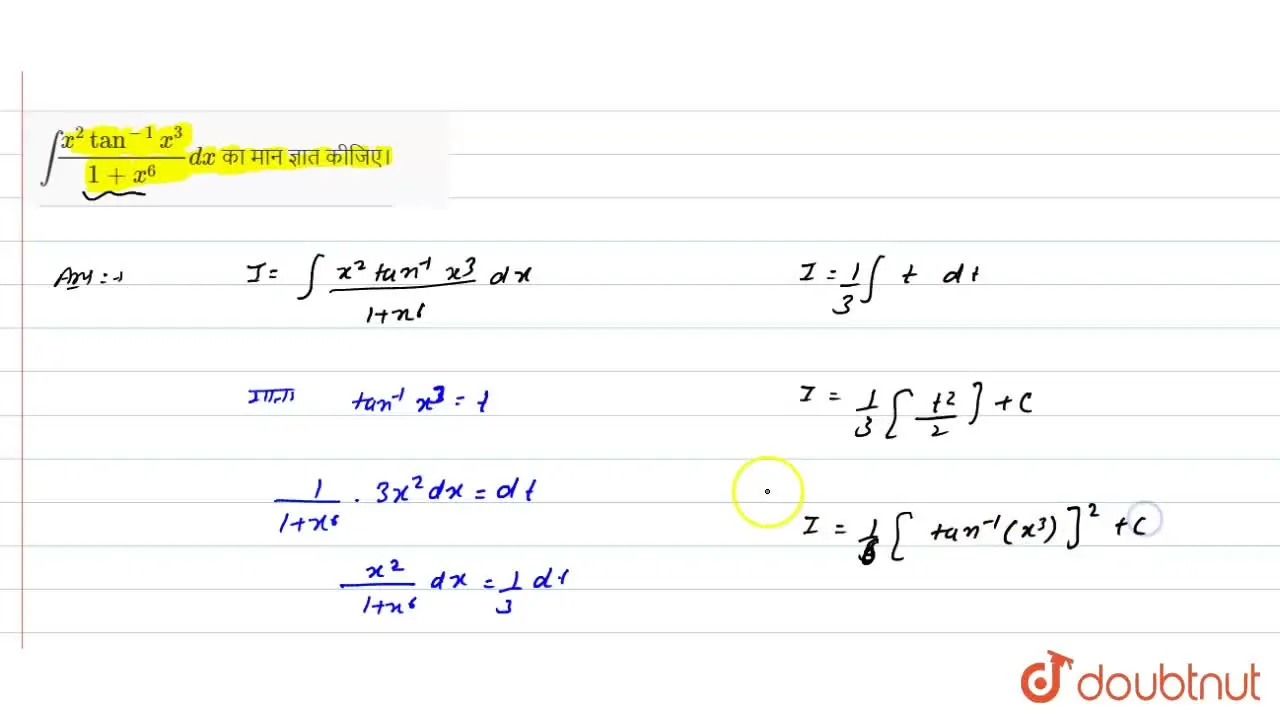 ∫ x² tan⁻¹ x³ / 1 + x⁶ dx का मान ज्ञात कीजिए।
Ans :→
I = ∫ x² tan⁻¹ x³ / 1+x⁶ dx
माना tan⁻¹ x³ = t
1 / 1+x⁶ . 3x² dx = dt
x² / 1+x⁶ dx = 1/3 dt
I = 1/3 ∫ t dt
I = 1/3 [ t²/2 ] + C
I = 1/6 [ tan⁻¹ (x³) ]² + C
doubtnut